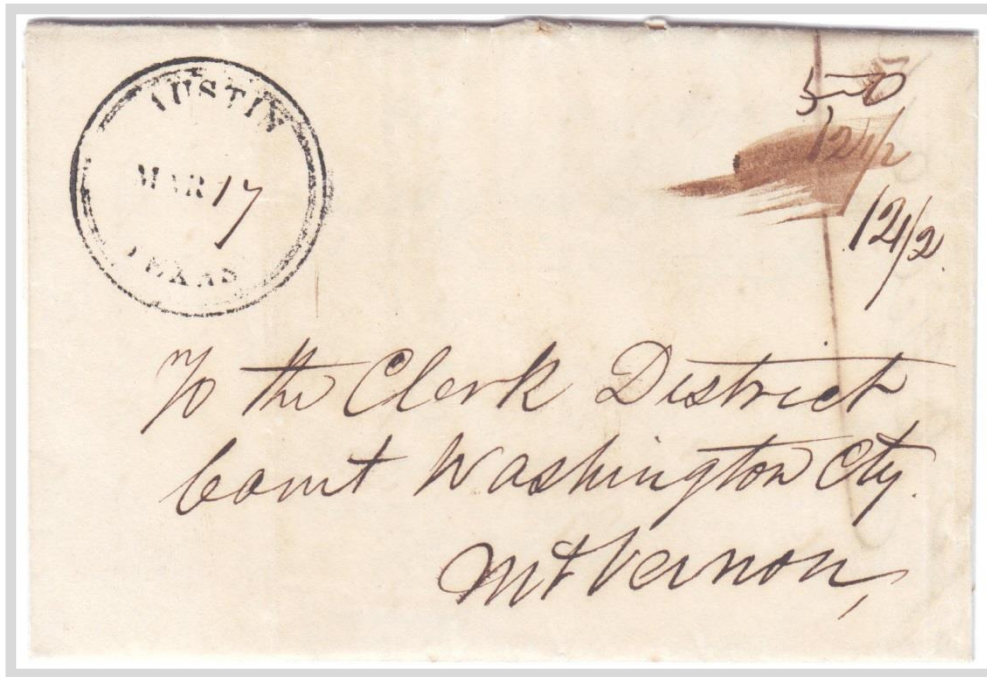 AUSTIN
MAR 17
TEXAS
50
12 1/2
12 1/2
To the Clerk District
Court Washington Cty.
Mt Vernon,